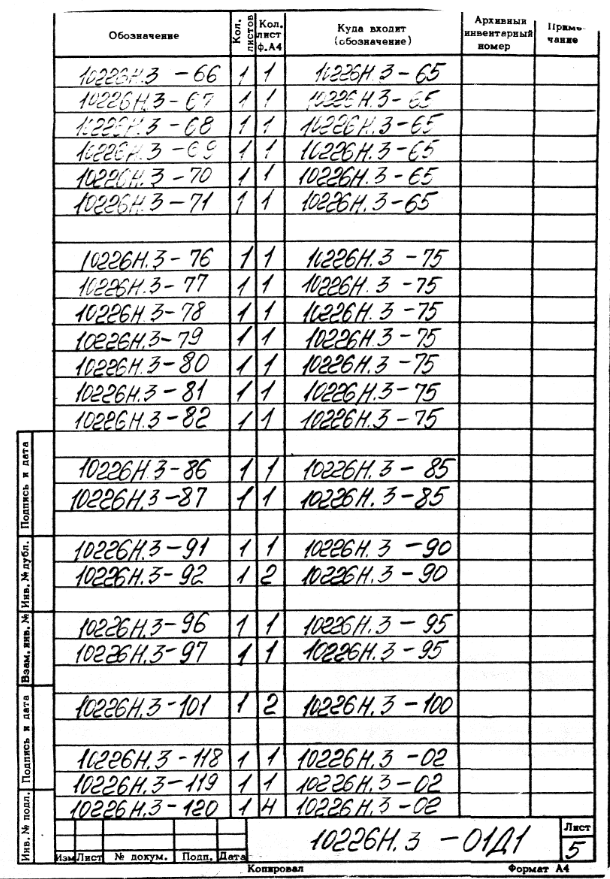 Обозначение Кол. листов Кол. лист ф.А4 Куда входит (обозначение) Архивный инвентарный номер Примечание
10226Н.3 - 66 1 1 10226Н.3 - 65
10226Н.3 - 67 1 1 10226Н.3 - 65
10226Н.3 - 68 1 1 10226Н.3 - 65
10226Н.3 - 69 1 1 10226Н.3 - 65
10226Н.3 - 70 1 1 10226Н.3 - 65
10226Н.3 - 71 1 1 10226Н.3 - 65
10226Н.3 - 76 1 1 10226Н.3 - 75
10226Н.3 - 77 1 1 10226Н.3 - 75
10226Н.3 - 78 1 1 10226Н.3 - 75
10226Н.3 - 79 1 1 10226Н.3 - 75
10226Н.3 - 80 1 1 10226Н.3 - 75
10226Н.3 - 81 1 1 10226Н.3 - 75
10226Н.3 - 82 1 1 10226Н.3 - 75
10226Н.3 - 86 1 1 10226Н.3 - 85
10226Н.3 - 87 1 1 10226Н.3 - 85
10226Н.3 - 91 1 1 10226Н.3 - 90
10226Н.3 - 92 1 2 10226Н.3 - 90
10226Н.3 - 96 1 1 10226Н.3 - 95
10226Н.3 - 97 1 1 10226Н.3 - 95
10226Н.3 - 101 1 2 10226Н.3 - 100
10226Н.3 - 118 1 1 10226Н.3 - 02
10226Н.3 - 119 1 1 10226Н.3 - 02
10226Н.3 - 120 1 4 10226Н.3 - 02
Подпись и дата
Инв. № дубл.
Взам. инв. №
Подпись и дата
Инв. № подл.
Изм Лист № докум. Подп. Дата
10226Н.3 - 01Д1
Лист
5
Копировал Формат А4